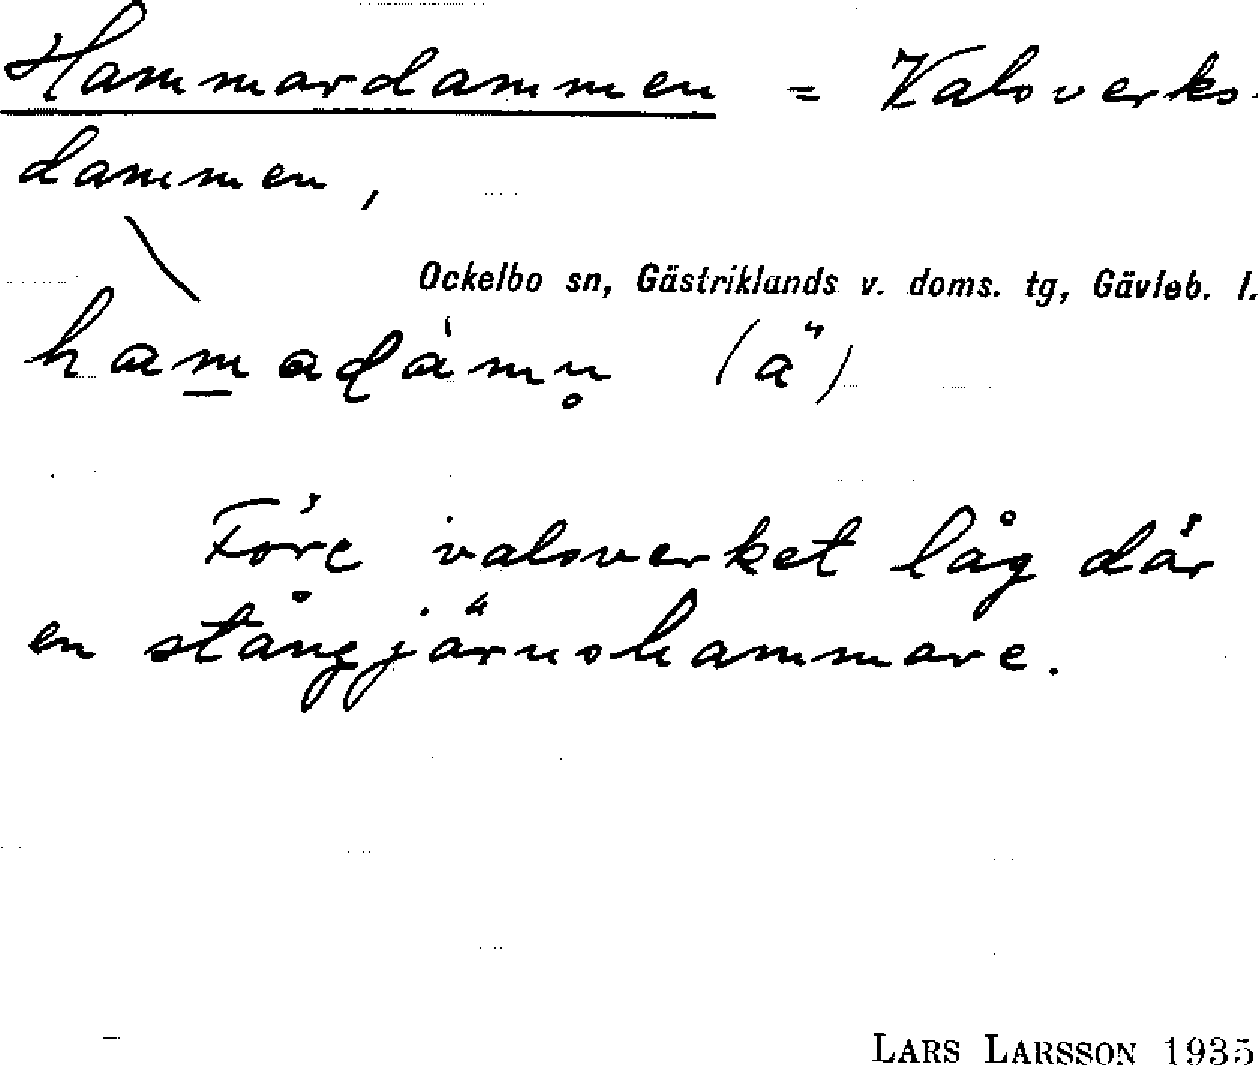 Hammardammen = Valsverks-
dammen,
Ockelbo sn, Gästriklands v. doms. tg, Gävleb. l.
ham̲adámn̥ (ä)
Före valsverket låg där
en stångjärnshammare.
LARS LARSSON 1935